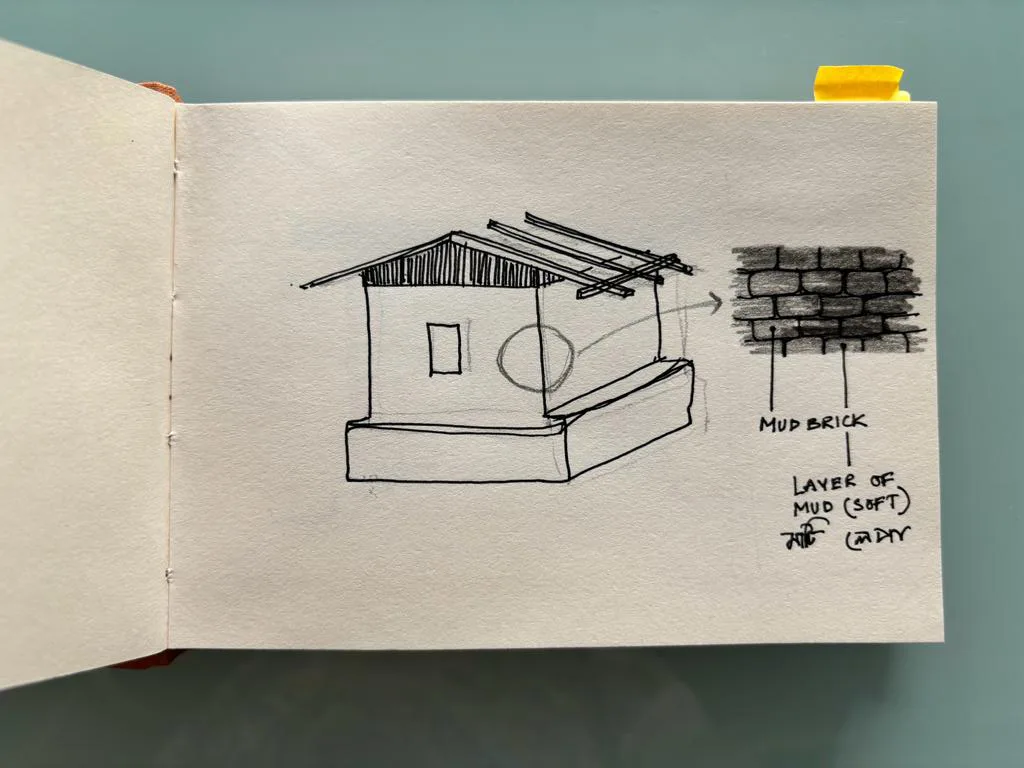 MUD BRICK
LAYER OF
MUD (SOFT)